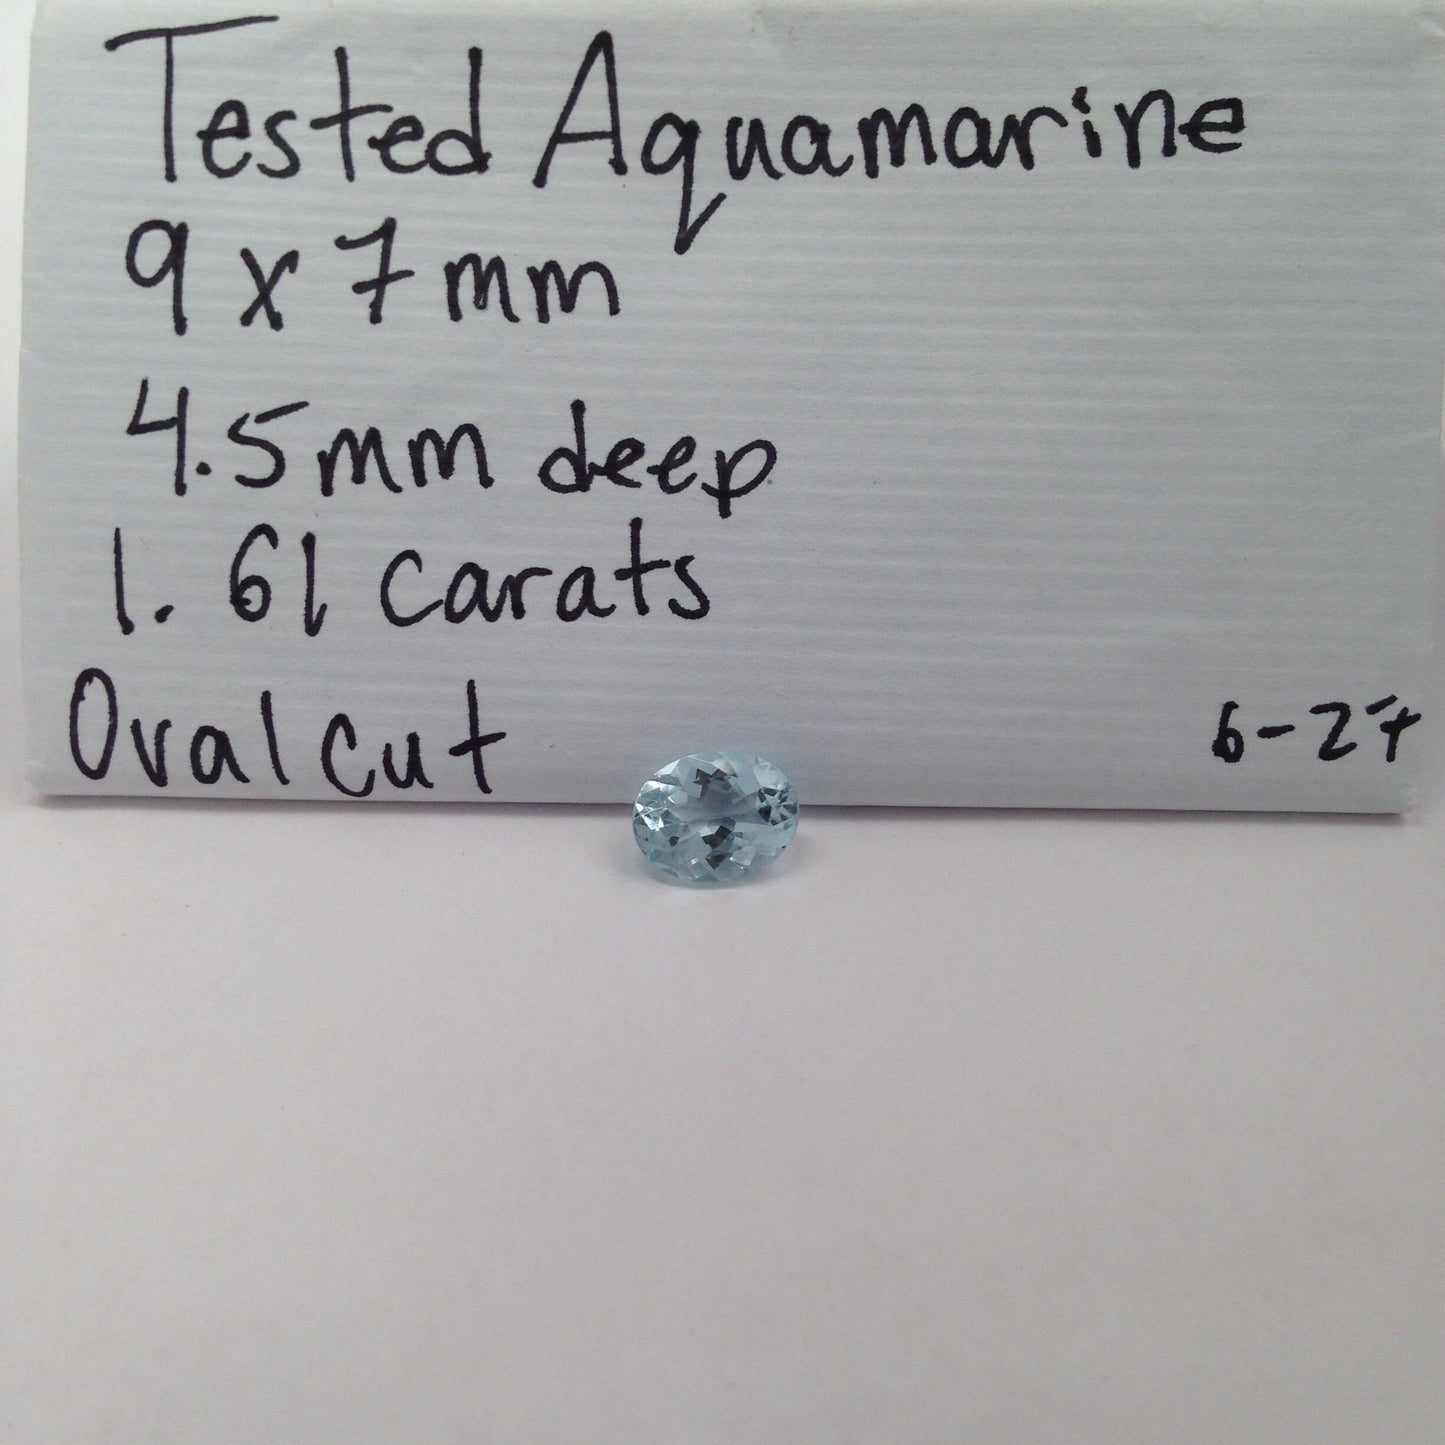 Tested Aquamarine
9 x 7mm
4.5mm deep
1.61 carats
Oval cut
6-27